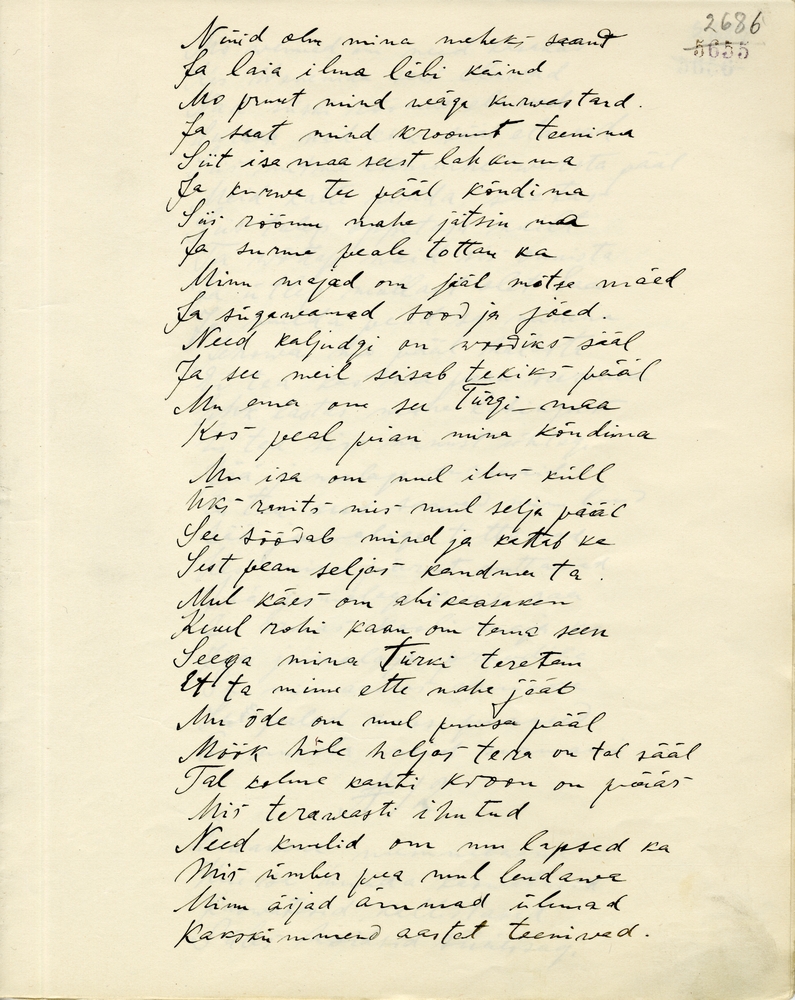 2686
5655
Nüid olen mina meheks saand
Ja laia ilma läbi käind
Mo pruut mind wäga kurwastand.
Ja saat mind kroonut teenima
Siit isamaa seest lahkuma
Ja kurwa tee pääl kõndima
Siis rõõmu mahe jätsin ma
Ja surma peale tottan ka
Minu majad om jääl mötsa mäed
Ja sügawamad sood ja jõed.
Need kaljudgi on woodiks sääl
Ja see meil seisab tekiks pääl
Mu ema om see Türgi-maa
Kos peal pian mina kõndima
Mu isa om mul ilus küll
Üks ranits mis mul selja pääl
See söödab mind ja kattab ka
Sest pean seljas kandma ta.
Mul käes om abikaasaken
Kuul rohi kaan om tema seen
Seega mina Türki teretan
Et ta minu ette maha jääb
Mu õde om mul puusa pääl
Mõõk hõle haljas tera on tal sääl
Tal kolme kanti kroon on pääs
Mis terawasti ihutud
Need kuulid om mu lapsed ka
Mis ümber pea mul lendawa
Minu äijad ämmad ülmad
Kakskümmend aastat teeniwad.